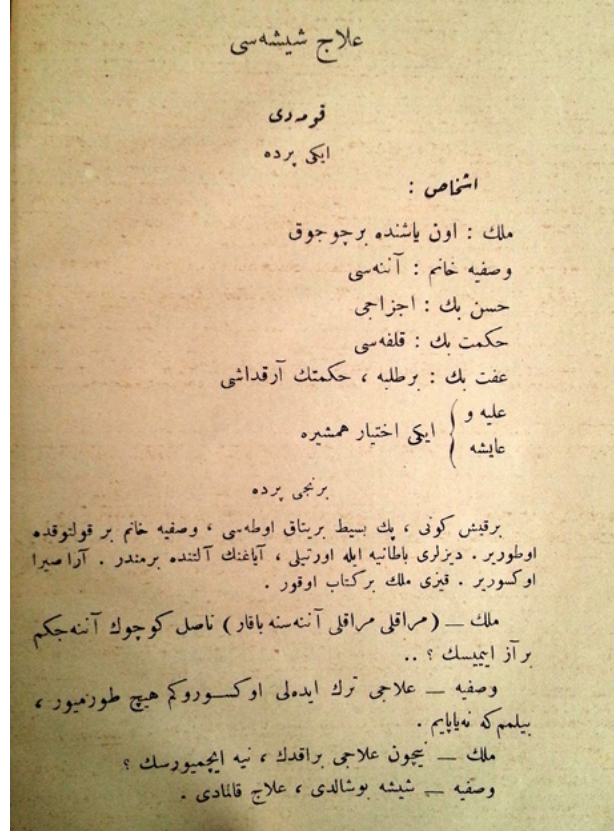 علاج شیشه‌سی
قومه‌دی
ایکی پرده
اشخاص :
ملك : اون یاشنده برچوجوق
وصفیه خانم : آننه‌سی
حسن بك : اجزاجی
حكمت بك : قلفه‌سی
عفت بك : برطلبه ، حكمتك آرقداشی
علیه و
عایشه } ایکی اختیار همشیره
برنجی پرده
برقیش كونی ، پك بسیط بریتاق اوطه‌سی ، وصفیه خانم بر قولتوقده
اوطوریر . دیزلری باطانیه ایله اورتیلی ، آیاغنك آلتنده برمندر . آرا صیرا
اوكسوریر . قیزی ملك بركتاب اوقور .
ملك — (مراقلی مراقلی آننه‌سنه باقار) ناصل كوچوك آننه‌جكم
بر آز اییمیسك ؟ ..
وصفیه — علاجی ترك ایده‌لی اوكسوروكم هیچ طورمیور ،
بیلمم كه نه‌یاپایم .
ملك — نیچون علاجی براقدك ، نیه ایچمیورسك ؟
وصفیه — شیشه بوشالدی ، علاج قالمادی .